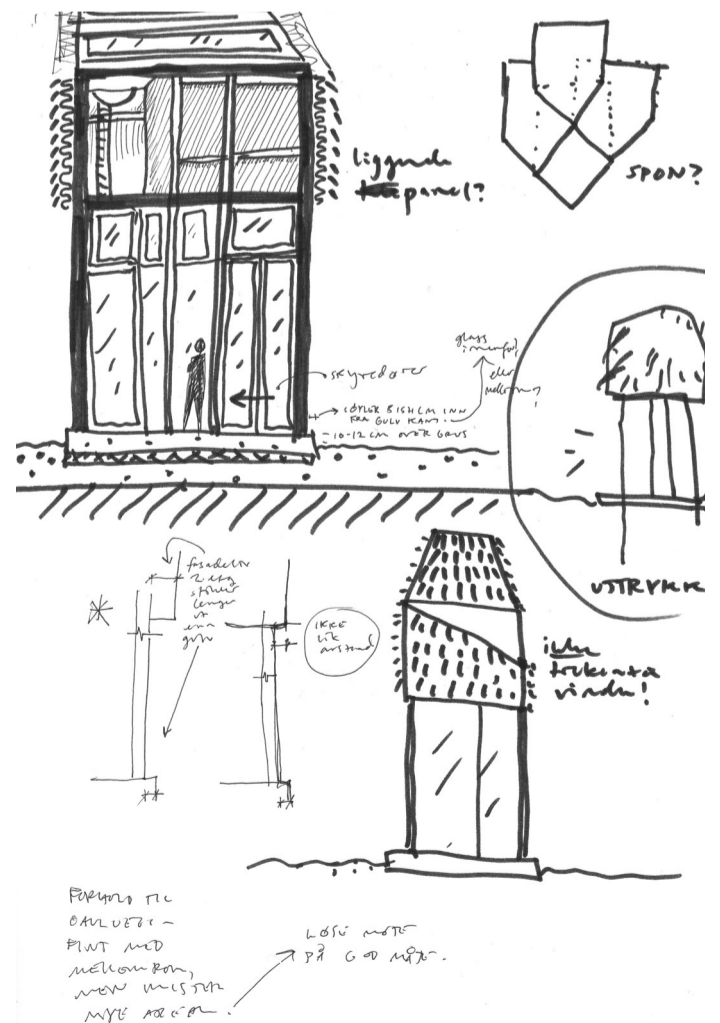 liggende
panel?
SPON?
skyvedører
glass
eller
mellomrom?
SØYLER 8-15 CM INN
FRA GULV KANT.
10-12 CM OVER GRUS
UTTRYKK
fasadeliv
2. etg
stikker
lenger
ut
enn
gulv
IKKE
lik
avstand
ikke
trekanta
vindu!
FORHOLD TIL
GAVLVEGG –
FINT MED
MELLOMROM,
MEN MISTER
MYE AREAL.
LØSE MØTE
PÅ GOD MÅTE.